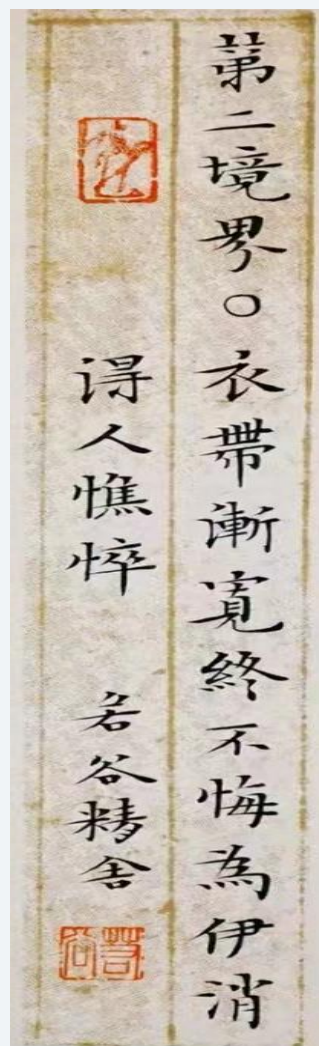 第二境界○衣帶漸寬終不悔為伊消
得人憔悴 若谷精舍